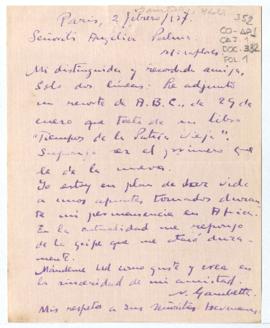 352
CO-AP1
CA-7
DOC. 382
FOL. 1
París, 2 febrero/37.
Señorita Angélica Palma
Mi distinguida y recordada amiga,
Solo dos líneas: Le adjunto
un recorte de A.B.C., de 29 de
enero que trata de su libro
"Tiempos de la Patria Vieja".
Supongo es el primero que
le da la nueva.
Yo estoy en plan de dar vida
a unos apuntes tomados duran
te mi permanencia en Africa.
En la actualidad me repongo
de la gripe que me atacó dura-
mente.
Mándeme Ud como guste y crea en
la sinceridad de mi amistad.
Gambetta
Mis respetos a sus Señoritas hermanas